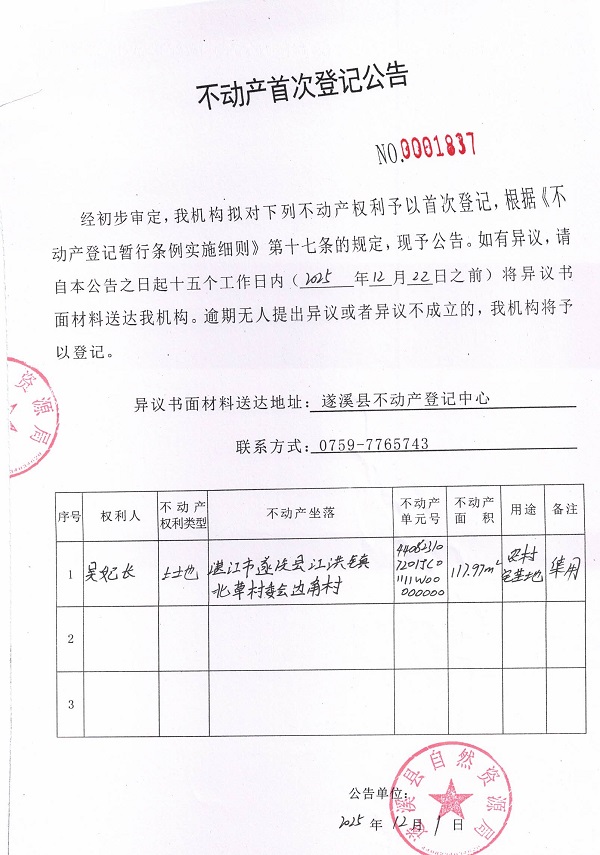 不动产首次登记公告
NO.0001837
经初步审定，我机构拟对下列不动产权利予以首次登记，根据《不
动产登记暂行条例实施细则》第十七条的规定，现予公告。如有异议，请
自本公告之日起十五个工作日内（2025年12月22日之前）将异议书
面材料送达我机构。逾期无人提出异议或者异议不成立的，我机构将予
以登记。
资源局
异议书面材料送达地址：遂溪县不动产登记中心
联系方式：0759-7765743
序号 权利人 不动产权利类型 不动产坐落 不动产单元号 不动产面积 用途 备注
1 吴妃长 土地 湛江市遂溪县江洪镇北草村委会边角村 117.97m² 农村宅基地 集用
2
3
遂溪县自然资源局
公告单位：
2025年12月1日